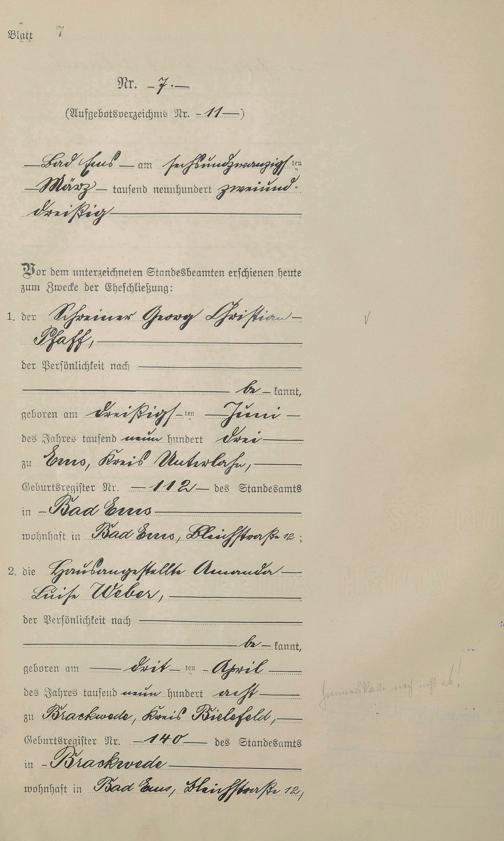 Blatt 7
Nr. 7.
(Aufgebotsverzeichnis Nr. 11)
Bad Ems am sechsundzwanzigsten
März tausend neunhundert zweiund-
dreißig
Vor dem unterzeichneten Standesbeamten erschienen heute
zum Zwecke der Eheschließung:
1. der Schreiner Georg Christian
Pfaff,
der Persönlichkeit nach
be kannt,
geboren am dreißigsten Juni
des Jahres tausend neun hundert drei
zu Ems, Kreis Unterlahn,
Geburtsregister Nr. 112 des Standesamts
in Bad Ems
wohnhaft in Bad Ems, Bleichstraße 12;
2. die Hausangestellte Amanda
Luise Weber,
der Persönlichkeit nach
be kannt,
geboren am dritten April
des Jahres tausend neun hundert acht
zu Brackwede, Kreis Bielefeld,
Geburtsregister Nr. 140 des Standesamts
in Brackwede
wohnhaft in Bad Ems, Bleichstraße 12,